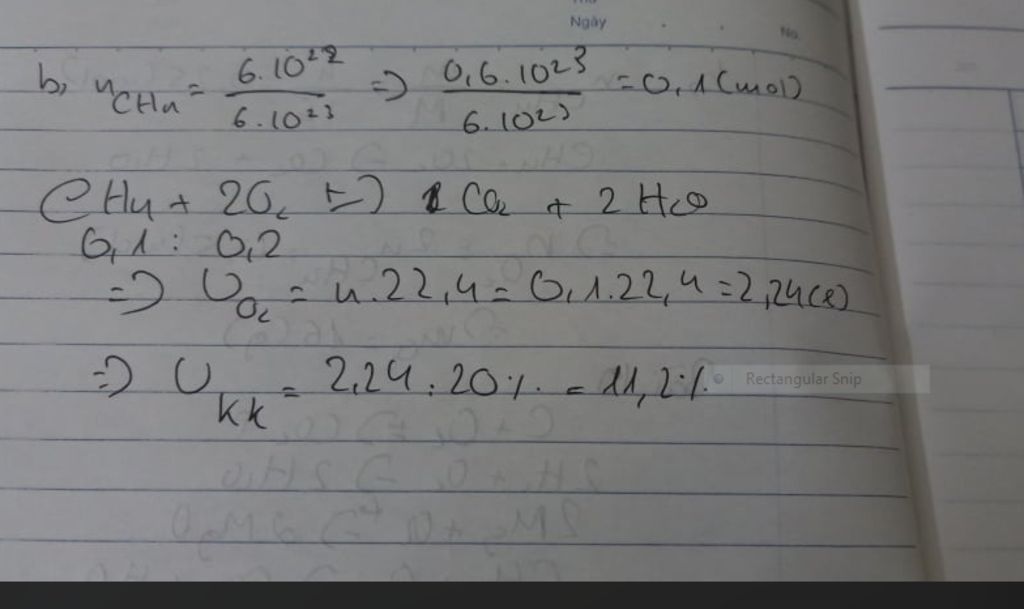 Ngày
No.
b, nCH4 = 6.10²² / 6.10²³ => 0,6.10²³ / 6.10²³ = 0,1 (mol)
CH4 + 2O2 => 1 CO2 + 2 H2O
0,1 : 0,2
=> VO2 = n.22,4 = 0,1.22,4 = 2,24 (l)
=> Vkk = 2,24 : 20% = 11,2%
Rectangular Snip